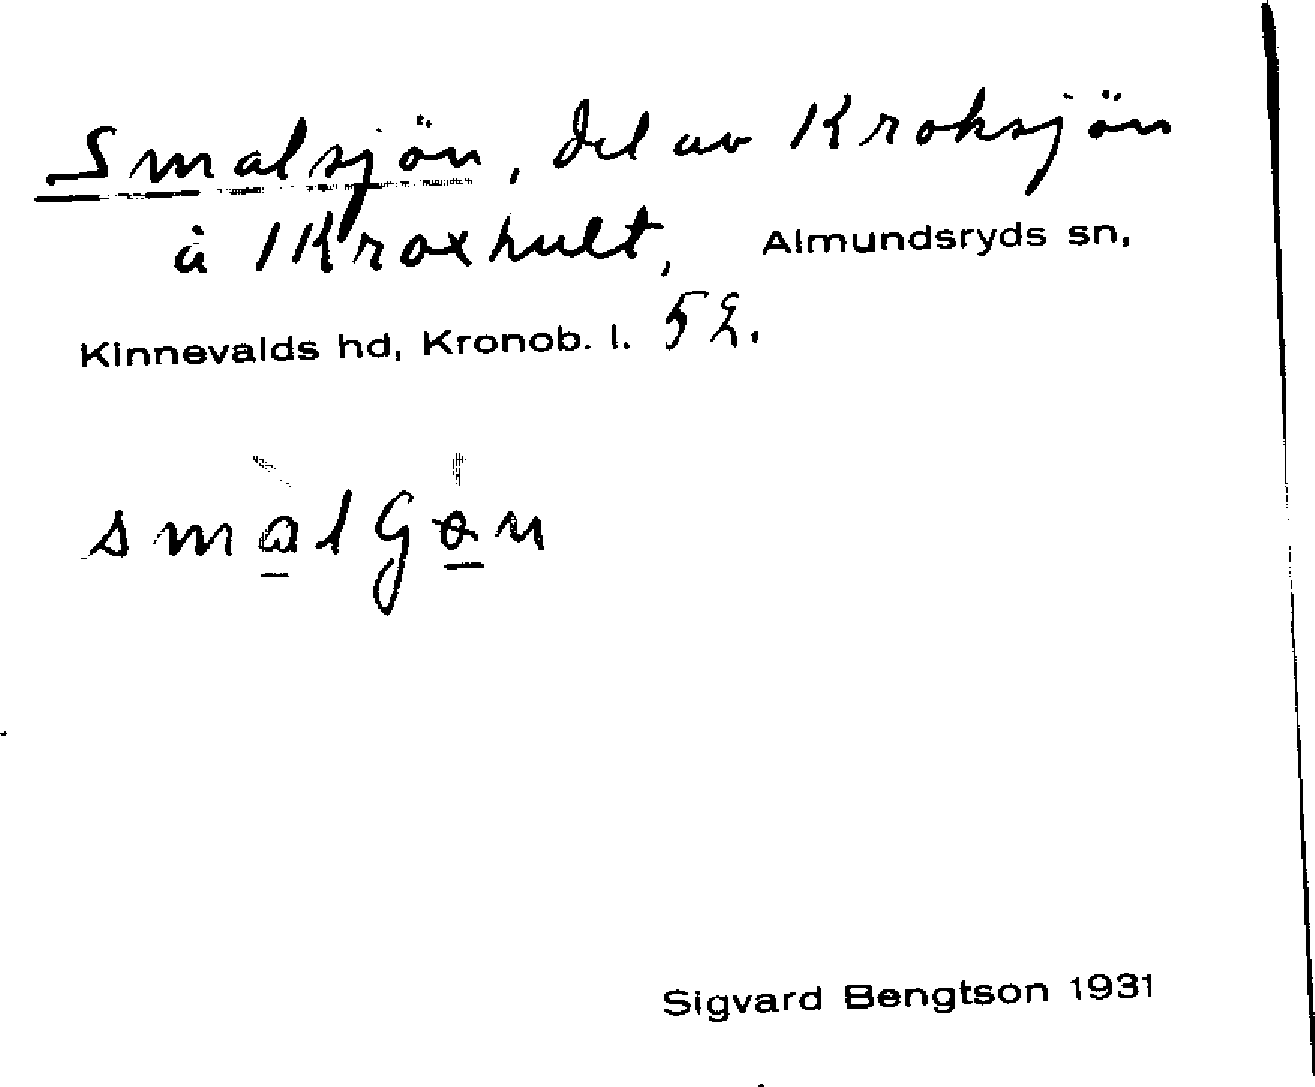 Smalsjön, del av Kroksjön
å Kroxhult, Almundsryds sn,
Kinnevalds hd, Kronob. l. 52.
smalGɵn
Sigvard Bengtson 1931